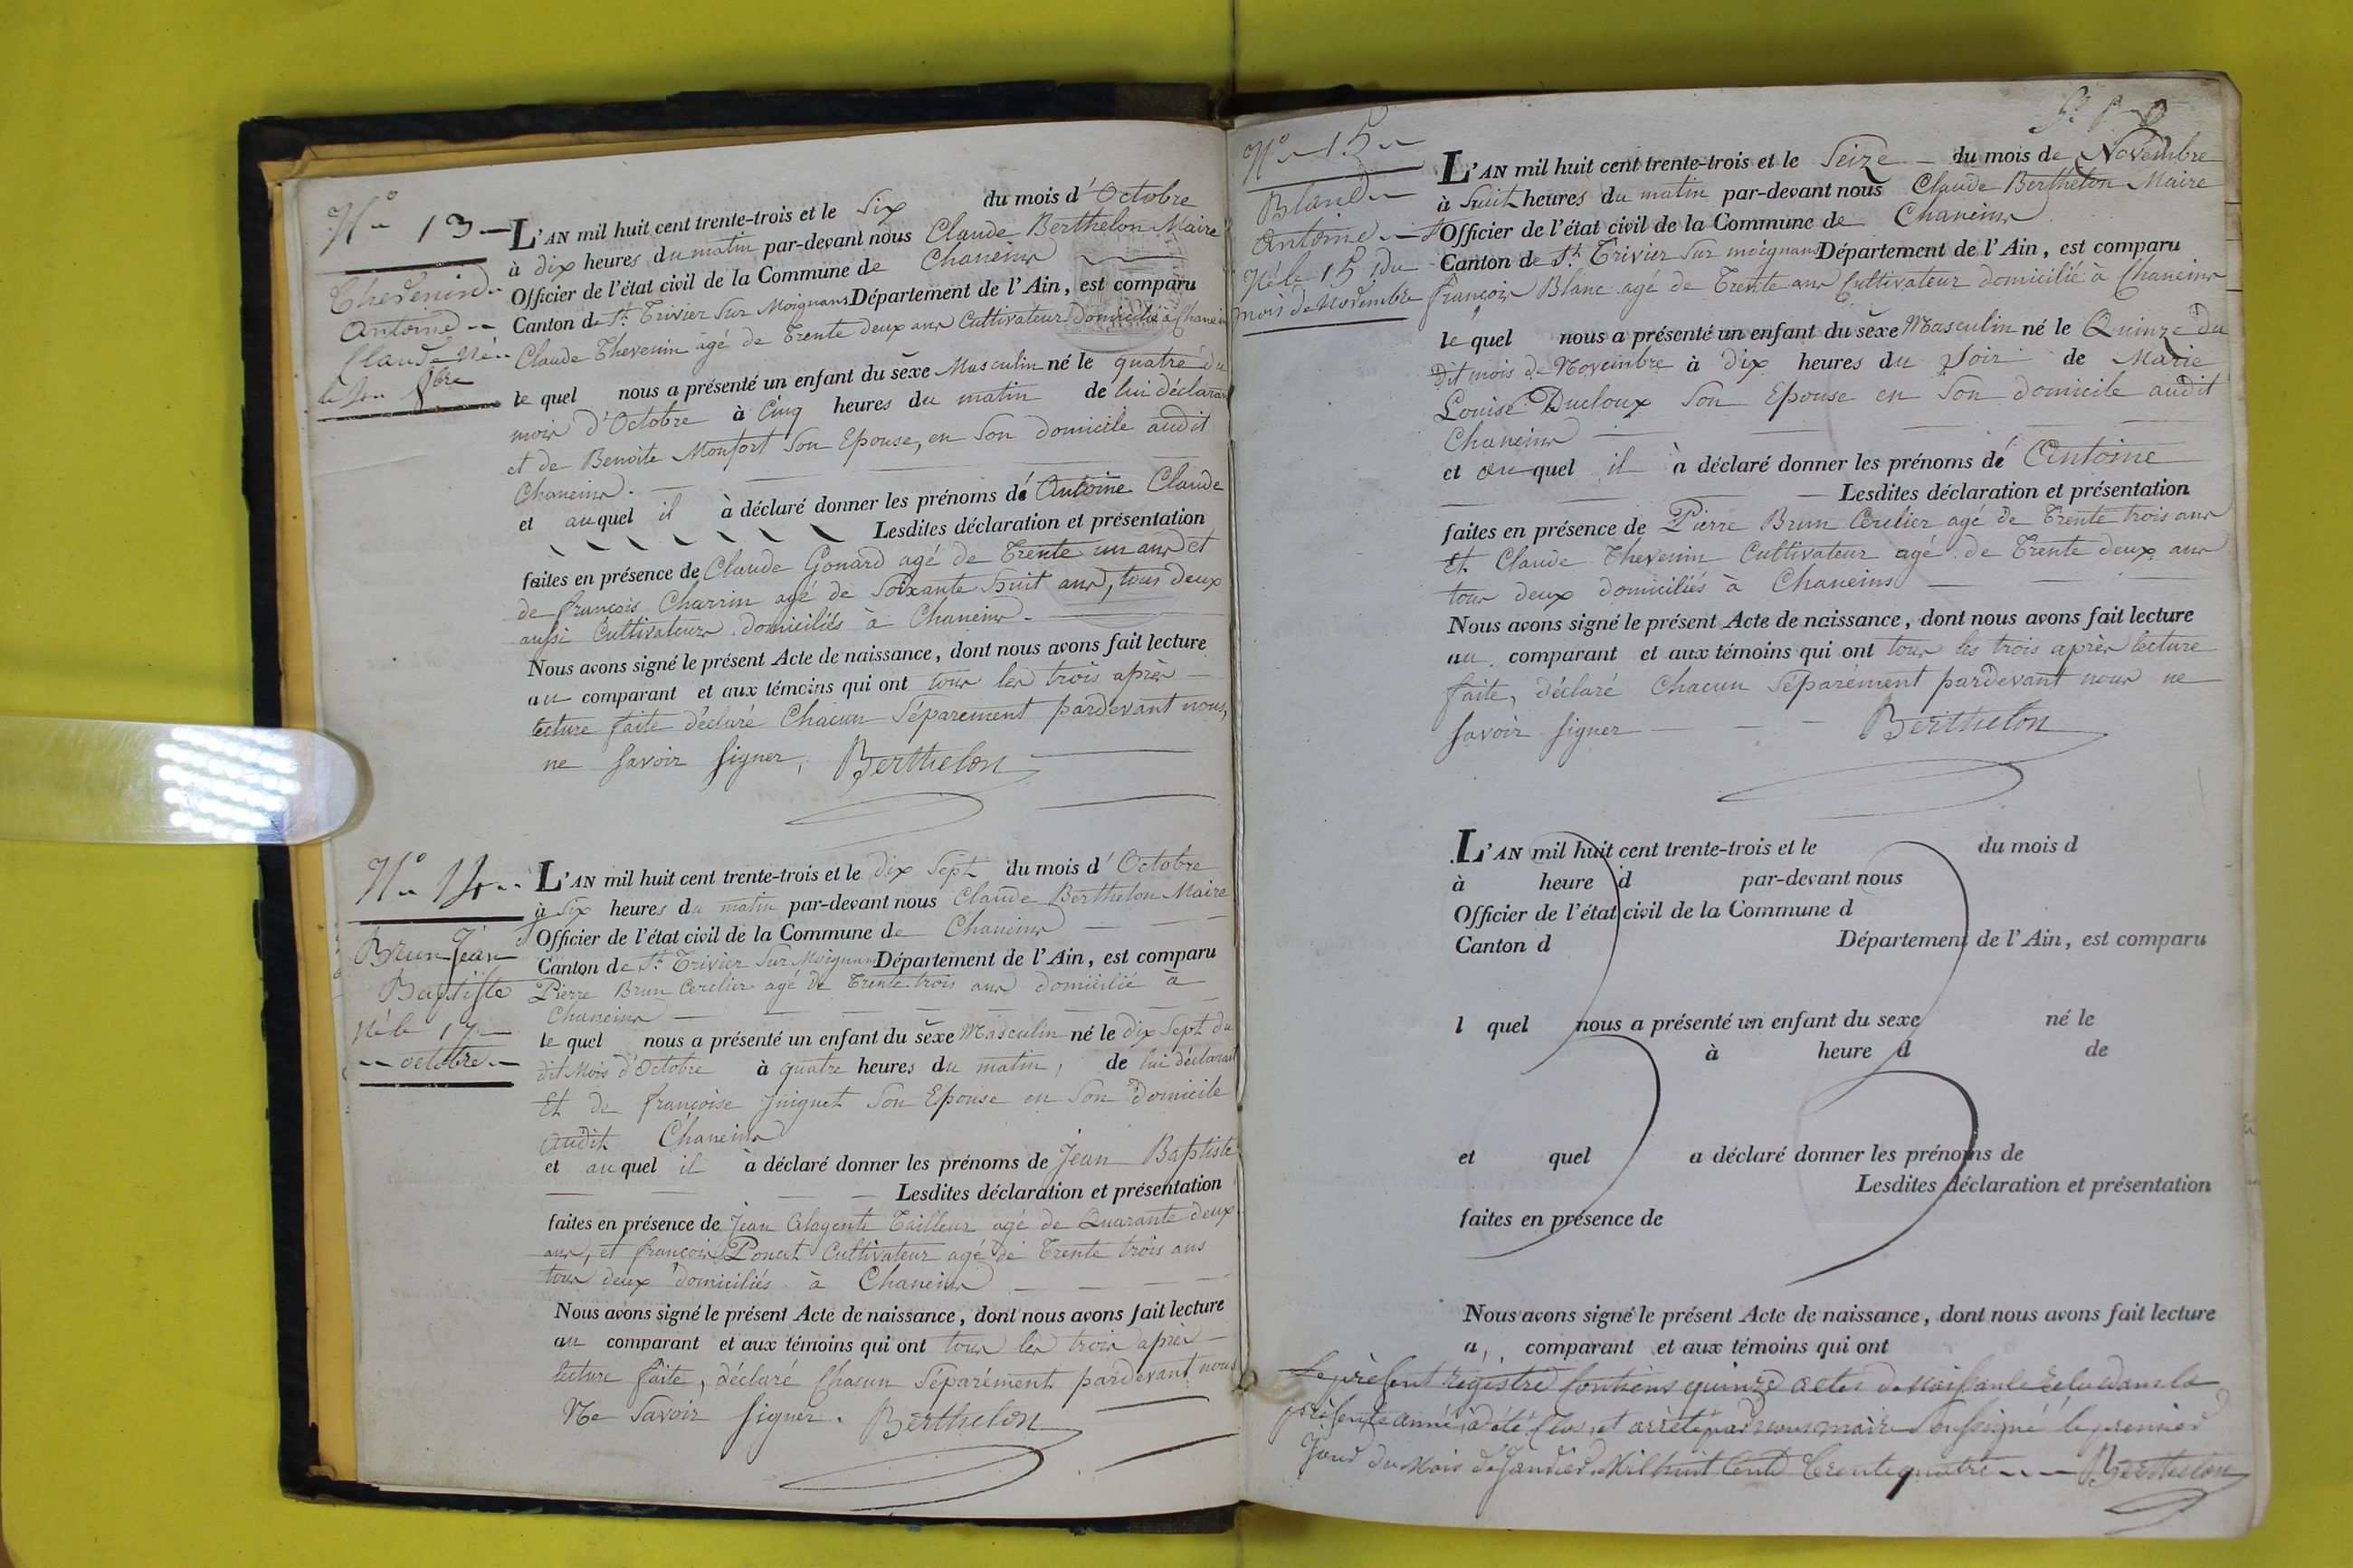 N° 13
Thevenin
Antoine
Claude né
le 4 8bre
L'AN mil huit cent trente-trois et le Six du mois d'Octobre
à dix heures du matin par-devant nous Claude Berthelon Maire
Officier de l'état civil de la Commune de Chaneins
Canton de St. Trivier Sur Moignans Département de l'Ain, est comparu
Claude Thevenin agé de Trente deux ans Cultivateur domicilié à Chaneins
le quel nous a présenté un enfant du sèxe Masculin né le quatre du
mois d'Octobre à Cinq heures du matin de lui déclarant
et de Benoite Monfort Son Epouse, en Son domicile audit
Chaneins.
et auquel il à déclaré donner les prénoms dé Antoine Claude
Lesdites déclaration et présentation
faites en présence de Claude Gonard agé de Trente un ans et
de françois Charrin agé de Soixante Huit ans, tous deux
aussi Cultivateurs domiciliés à Chaneins.
Nous avons signé le présent Acte de naissance, dont nous avons fait lecture
au comparant et aux témoins qui ont tous les trois après
lecture faite déclaré Chacun Séparement pardevant nous,
ne Savoir Signer, Berthelon
N° 14
Brun Jean
Baptiste
né le 17
octobre
L'AN mil huit cent trente-trois et le dix Sept du mois d'Octobre
à Six heures du matin par-devant nous Claude Berthelon Maire
Officier de l'état civil de la Commune de Chaneins
Canton de St. Trivier Sur Moignans Département de l'Ain, est comparu
Pierre Brun Cerclier agé de Trente trois ans domicilié à
Chaneins
le quel nous a présenté un enfant du sèxe Masculin né le dix Sept du
dit Mois d'Octobre à quatre heures du matin, de lui déclarant
Et de françoise Juignet Son Epouse en Son Domicile
audit Chaneins
et auquel il à déclaré donner les prénoms de Jean Baptiste
Lesdites déclaration et présentation
faites en présence de Jean Alagente Tailleur agé de Quarante deux
ans, et françois Poncet Cultivateur agé de Trente trois ans
tous deux domiciliés à Chaneins
Nous avons signé le présent Acte de naissance, dont nous avons fait lecture
au comparant et aux témoins qui ont tous les trois après
lecture faite, déclaré Chacun Séparément pardevant nous
Ne Savoir Signer. Berthelon
N° 15
Blanc
Antoine
Né le 15 du
mois de Novembre
L'AN mil huit cent trente-trois et le Seize du mois de Novembre
à huit heures du matin par-devant nous Claude Berthelon Maire
Officier de l'état civil de la Commune de Chaneins
Canton de St. Trivier Sur moignans Département de l'Ain, est comparu
françois Blanc agé de Trente ans Cultivateur domicilié à Chaneins
le quel nous a présenté un enfant du sèxe Masculin né le Quinze du
dit mois de Novembre à Dix heures du Soir de Marie
Louise Ducloux Son Epouse en Son domicile audit
Chaneins
et auquel il à déclaré donner les prénoms dé Antoine
Lesdites déclaration et présentation
faites en présence de Pierre Brun Cerclier agé de Trente trois ans
Et Claude Thevenin Cultivateur agé de Trente deux ans
tous deux domiciliés à Chaneins
Nous avons signé le présent Acte de naissance, dont nous avons fait lecture
au comparant et aux témoins qui ont tous les trois après lecture
faite, déclaré Chacun Séparément pardevant nous ne
Savoir Signer Berthelon
L'AN mil huit cent trente-trois et le du mois d
à heure d par-devant nous
Officier de l'état civil de la Commune d
Canton d Département de l'Ain, est comparu
l quel nous a présenté un enfant du sexe né le
à heure d de
et quel a déclaré donner les prénoms de
Lesdites déclaration et présentation
faites en présence de
Nous avons signé le présent Acte de naissance, dont nous avons fait lecture
a comparant et aux témoins qui ont
Le présent registre contiens quinze actes de naissance dans la
présente année, a été Clos et arrêté par nous maire Soussigné le premier
Jour du Mois de Janvier Mil huit Cent Trente quatre Berthelon